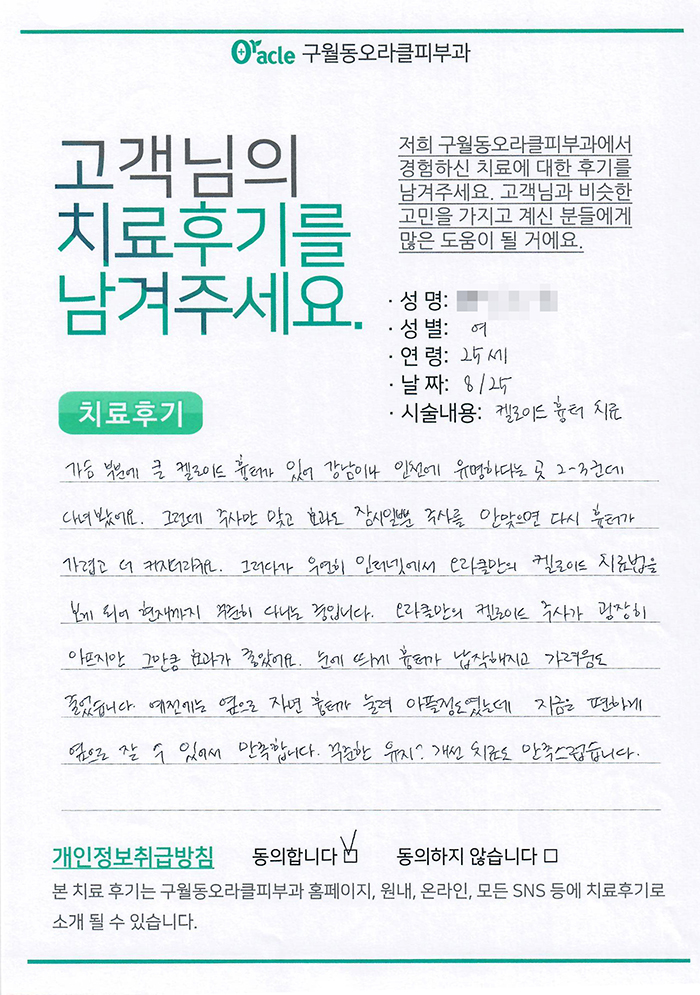 Oracle 구월동오라클피부과
고객님의
치료후기를
남겨주세요.
저희 구월동오라클피부과에서
경험하신 치료에 대한 후기를
남겨주세요. 고객님과 비슷한
고민을 가지고 계신 분들에게
많은 도움이 될 거에요.
· 성 명:
· 성 별: 여
· 연 령: 25세
· 날 짜: 8/25
· 시술내용: 켈로이드 흉터 치료
치료후기
가슴 부분에 큰 켈로이드 흉터가 있어 강남이나 인천에 유명하다는 곳 2-3군데
다녀봤어요. 그런데 주사만 맞고 효과도 잠시일뿐 주사를 안맞으면 다시 흉터가
가렵고 더 커지더라구요. 그러다가 우연히 인터넷에서 오라클만의 켈로이드 치료법을
보게 되어 현재까지 꾸준히 다니는 중입니다. 오라클만의 켈로이드 주사가 굉장히
아프지만 그만큼 효과가 좋았어요. 눈에 띄게 흉터가 납작해지고 가려움도
줄었습니다. 예전에는 옆으로 자면 흉터가 눌려 아플정도였는데 지금은 편하게
옆으로 잘 수 있어서 만족합니다. 꾸준한 유지? 개선 치료도 만족스럽습니다.
개인정보취급방침 동의합니다 동의하지 않습니다
본 치료 후기는 구월동오라클피부과 홈페이지, 원내, 온라인, 모든 SNS 등에 치료후기로
소개 될 수 있습니다.